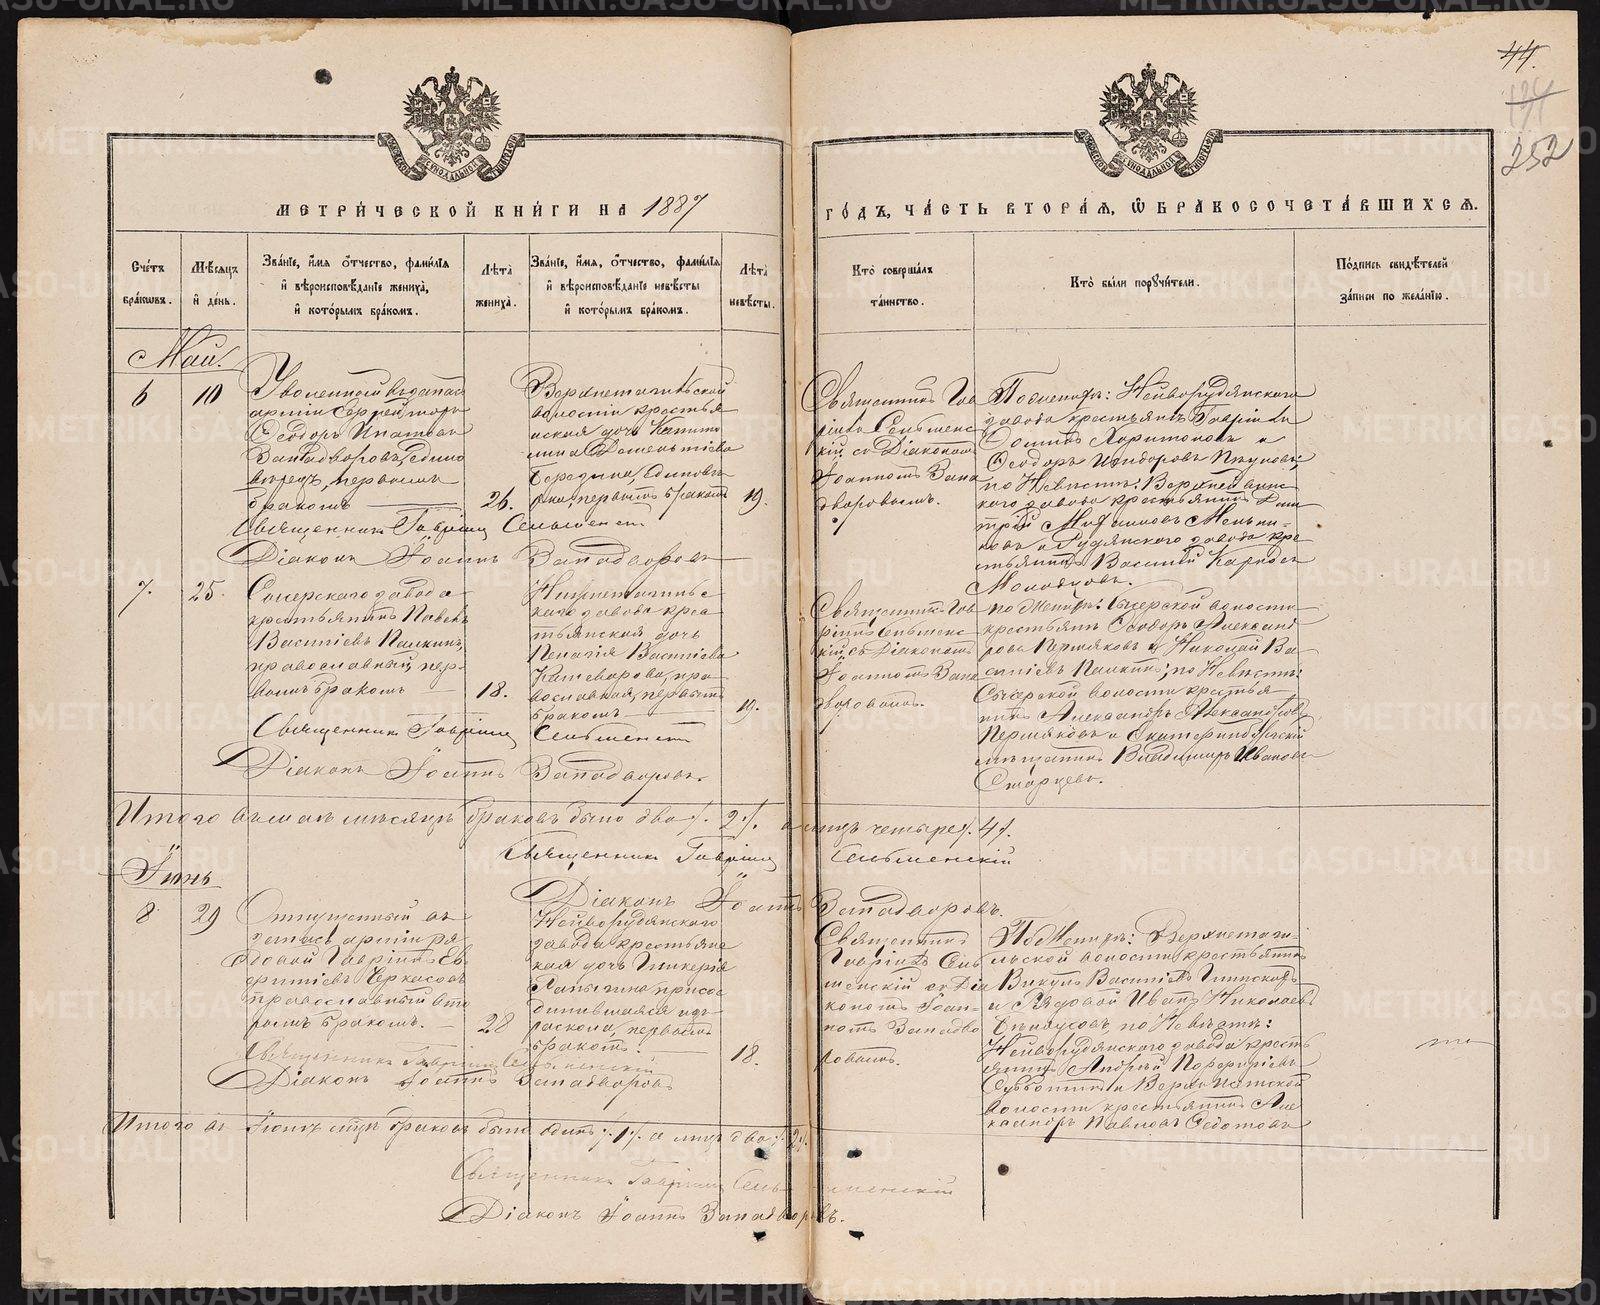 44.
134
252
МЕТРИ́ЧЕСКОЙ КНИ́ГИ НА 1887
ГО́ДЪ, ЧА́СТЬ ВТОРА́Я, Ѡ БРАКОСОЧЕТА́ВШИХСЯ.
Сче́тъ бра́кωвъ.
Мѣ́сяцъ и҆ де́нь.
Зва́нїе, и҆́мя ѻ҆́тчество, фами́лїя
и҆ вѣроисповѣ́данїе жениха̀,
и҆ кото́рымъ бра́комъ.
Лѣ́та̀ жениха̀.
Зва́нїе, и҆́мя, ѻ҆́тчество, фами́лїя
и҆ вѣроисповѣ́данїе невѣ́сты
и҆ кото́рымъ бра́комъ.
Лѣ́та̀ невѣ́сты.
Кто̀ соверша́лъ
та́инство.
Кто̀ бы́ли порꙋчи́тели.
По́дпись свидѣ́телей
за́писи по жела́нїю.
Май.
6
10
Уволенный въ запасъ
арміи
Ѳеодоръ Ипатовъ
Западворовъ, едино
вѣрецъ, первымъ
бракомъ
26.
Верхнетагильской
волости крестья
нская дочь Капито
лина
Бородина, единовѣр
ка, первымъ бракомъ
19.
Священникъ Гавріилъ
Сельменскій съ Діакономъ
Іоанномъ Запа
дворовымъ.
По женихѣ: Нейворудянскаго
завода крестьянинъ Гавріилъ
Харитоновъ и
Ѳеодоръ
по Невѣстѣ: Верхнетагиль
скаго завода крестьянинъ Дми
трій
и Рудянскаго завода кре
стьянинъ Василій Карповъ
Священникъ Гавріилъ Сельменскій
Діаконъ Іоаннъ Западворовъ
7.
25.
Сысерскаго завода
крестьянинъ Павелъ
Василіевъ Палкинъ,
православный, пер
вымъ бракомъ
18.
Нижнетагильс
каго завода крес
тьянская дочь
Пелагія Василіева
православная, первымъ
бракомъ
19.
Священникъ Гав
ріилъ Сельменс
кій съ Діакономъ
Іоанномъ Запа
дворовымъ.
по Женихѣ: Сысерской волости
крестьян. Ѳеодоръ Александ
ровъ Пермяковъ и Николай Ва
силіевъ Палкинъ; по Невѣстѣ:
Сысерской волости крестья
нинъ Александръ Александровъ
Пермяковъ и Екатеринбургскій
мѣщанинъ Владиміръ Ивановъ
Старцевъ.
Священникъ Гавріилъ Сельменскій
Діаконъ Іоаннъ Западворовъ.
Итого въ маѣ мѣсяцѣ браковъ было два /. 2 /. а лицъ четыре /. 4 /.
Священникъ Гавріилъ Сельменскій
Діаконъ Іоаннъ Западворовъ.
Іюнь
8
29
Отпущенный въ
запасъ арміи ря
довой Гавріилъ
Черкасовъ
православный вто
рымъ бракомъ.
28
Нейворудянскаго
завода крестьянс
кая дочь Гликерія
Лапыгина, присое
динившаяся изъ
раскола, первымъ
бракомъ.
18.
Священникъ
Гавріилъ Сель
менскій съ Діа
кономъ Іоан-
номъ Западво
ровымъ.
По Женихѣ: Верхнетаги-
льской волости крестьянинъ
Викулъ Василіевъ
и Рядовой Иванъ Николаевъ
Бѣлоусовъ, по Невѣстѣ:
Нейворудянскаго завода кресть
янинъ Андрей Порфиріевъ
Субботинъ и Верхнетагильской
волости крестьянинъ Але
ксандръ Павловъ Ѳедотовъ
Священникъ Гавріилъ Сельменскій
Діаконъ Іоаннъ Западворовъ
Итого въ Іюнѣ мцѣ браковъ было одинъ /. 1 /. а лицъ два /. 2 /.
Священникъ Гавріилъ Сельменскій
Діаконъ Іоаннъ Западворовъ.
METRIKI.GASO-URAL.RU